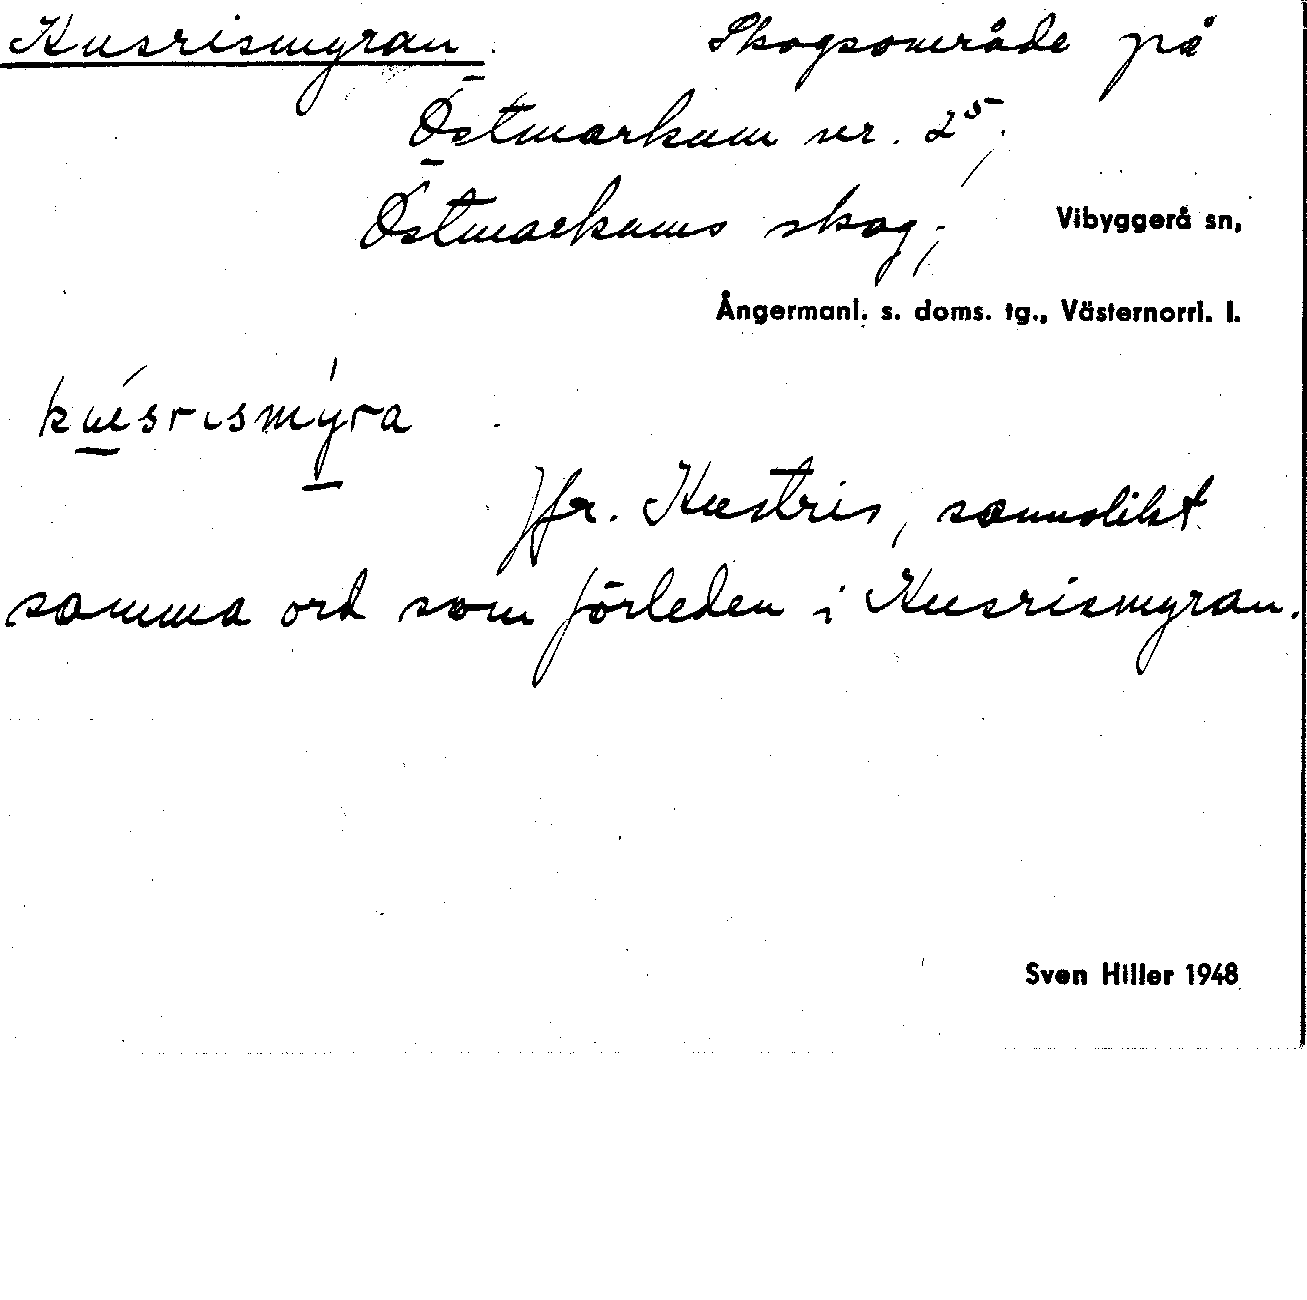 Kusrismyran. Skogsområde på
Östmarkum nr. 2⁵;
Östmarkums skog; Vibyggerå sn,
Ångermanl. s. doms. tg., Västernorrl. l.
kusrismýra
Jfr. Kustris, sannolikt
samma ord som förleden i Kusrismyran.
Sven Hiller 1948